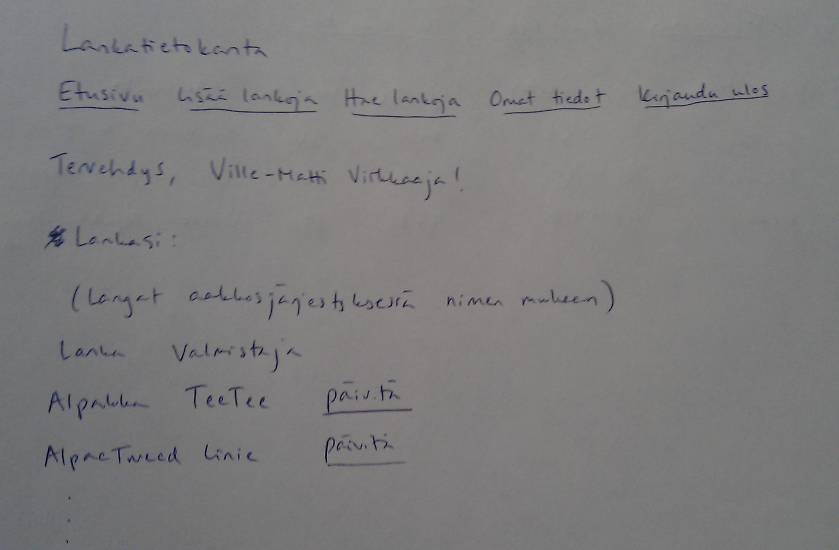 Lankatietokanta
Etusivu Lisää lankoja Hae lankoja Omat tiedot Kirjaudu ulos
Tervehdys, Ville-Matti Virkkaaja!
Lankasi:
(Langat aakkosjärjestyksessä nimen mukaan)
Lanka Valmistaja
Alpakka TeeTee päivitä
AlpacTweed Linie päivitä